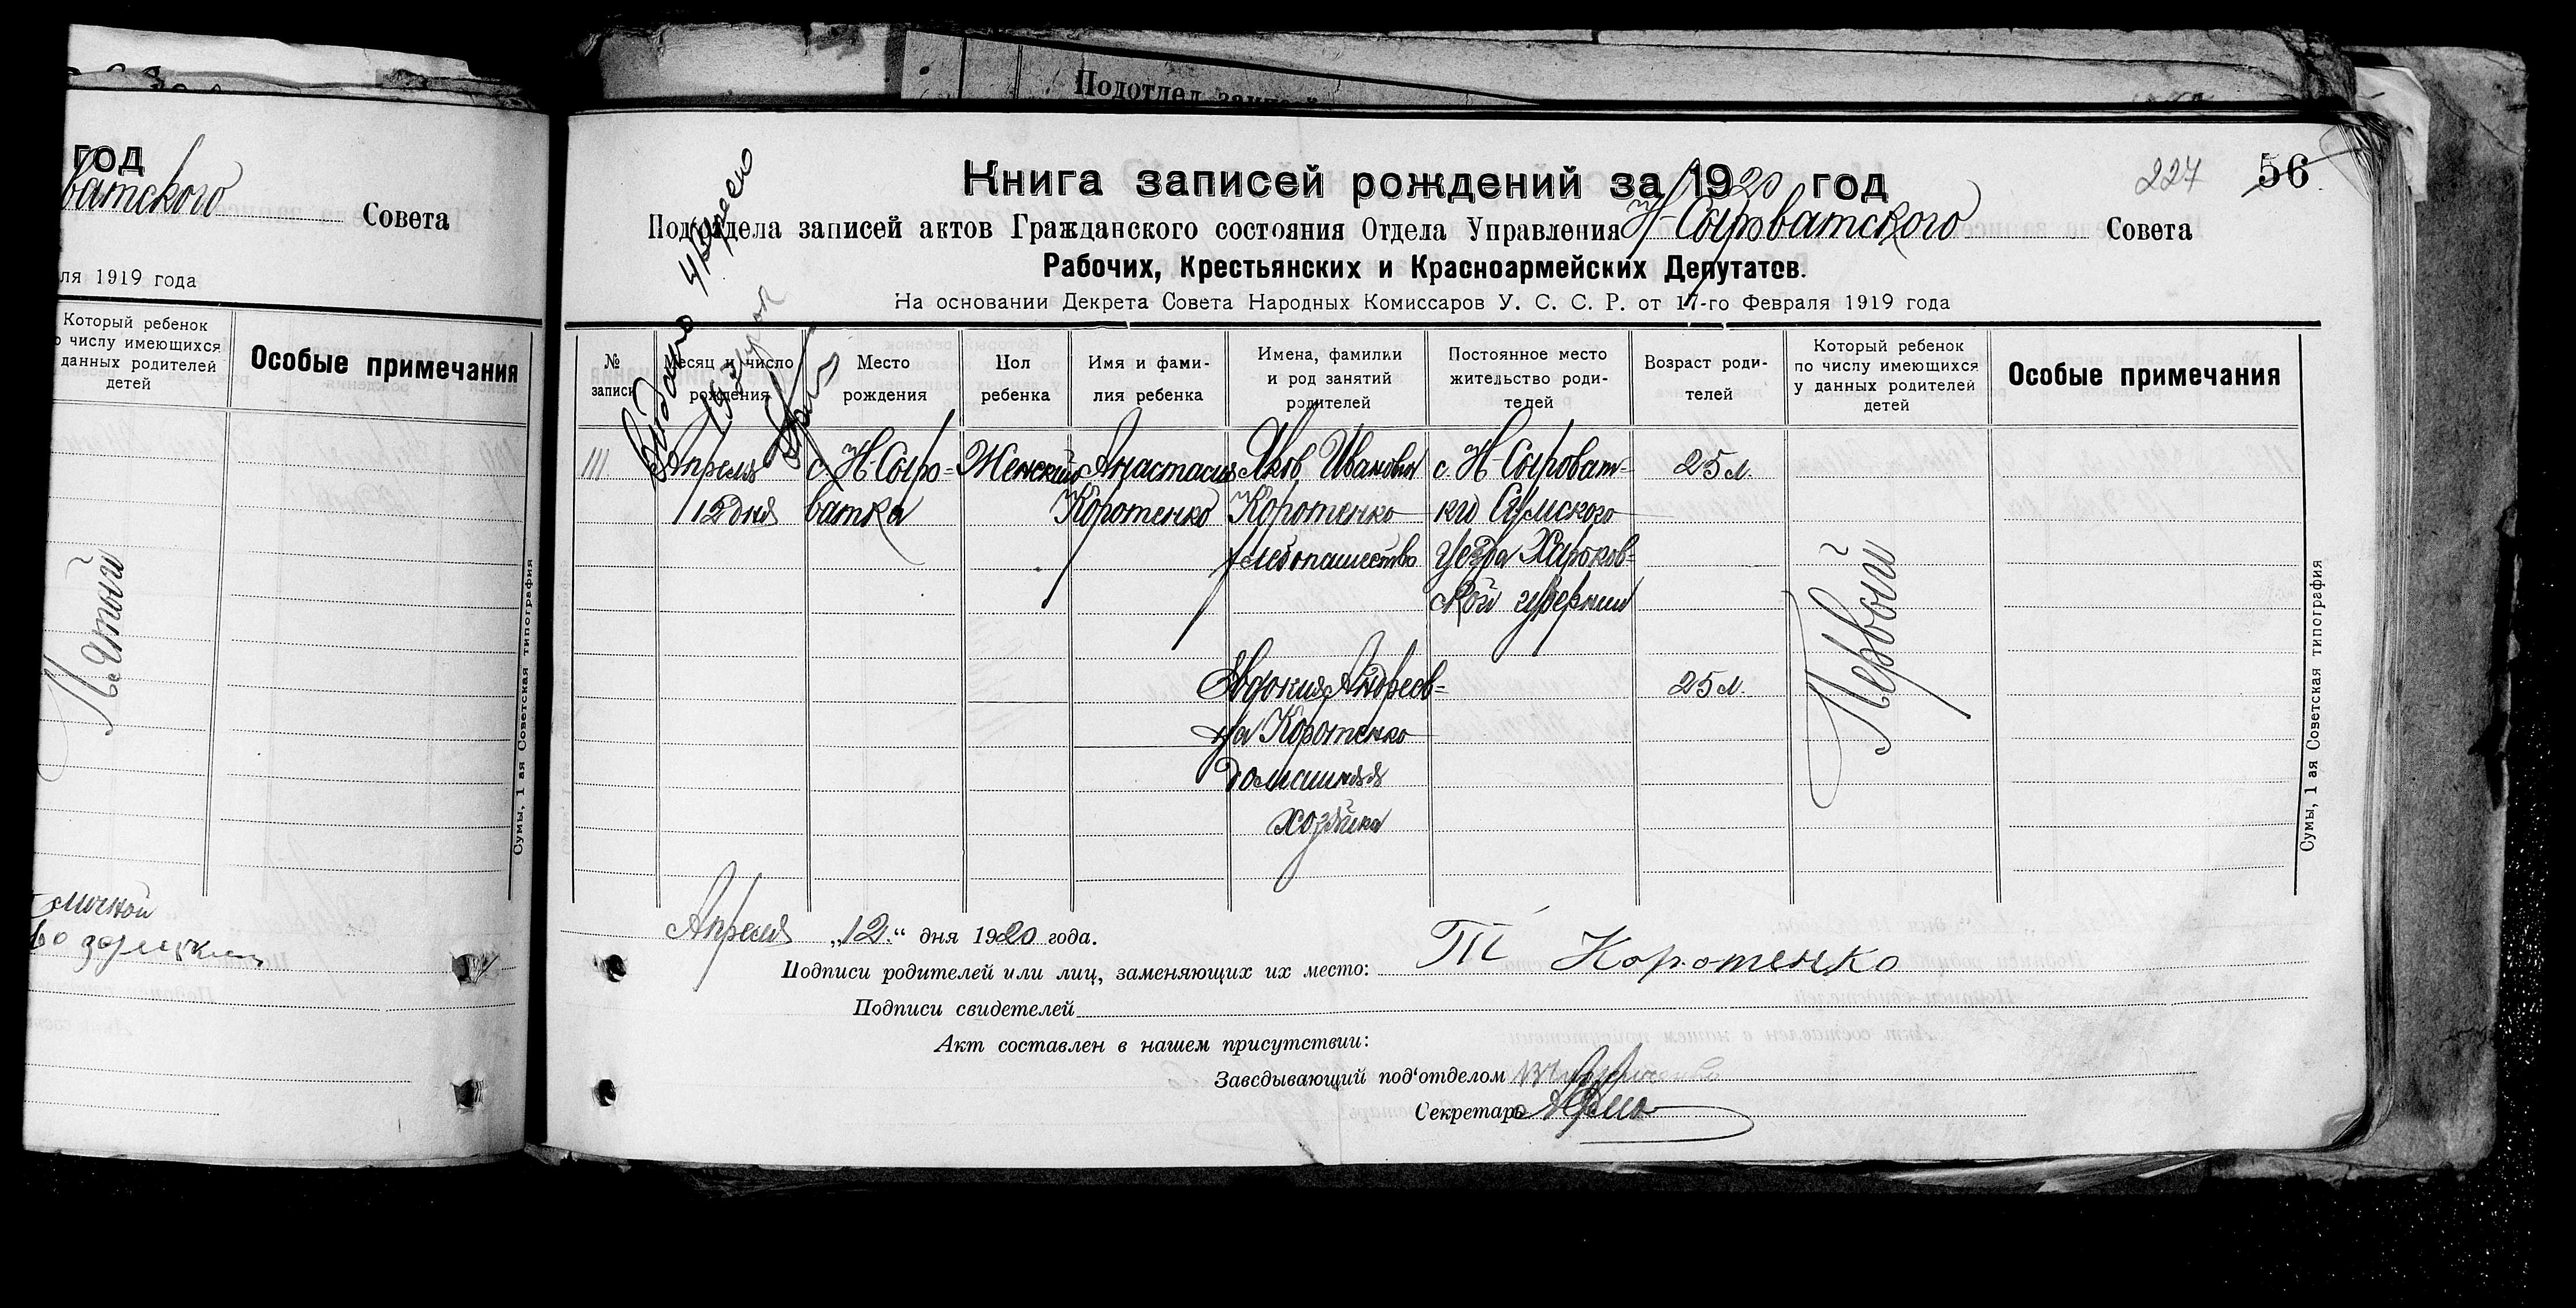 год
ватского Совета
ля 1919 года
Который ребенок
о числу имеющихся
данных родителей
детей
Особые примечания
Пятый
Сумы, 1 ая Советская типография
Подотдел
227 56
Книга записей рождений за 1920 год
Подотдела записей актов Гражданского состояния Отдела Управления Н-Сыроватского Совета
Рабочих, Крестьянских и Красноармейских Депутатов.
На основании Декрета Совета Народных Комиссаров У. С. С. Р. от 17-го Февраля 1919 года
№
записи
Месяц и число
рождения
Место
рождения
Пол
ребенка
Имя и фами-
лия ребенка
Имена, фамилии
и род занятий
родителей
Постоянное место
жительство роди-
телей
Возраст роди-
телей
Который ребенок
по числу имеющихся
у данных родителей
детей
Особые примечания
111.
Апреля
12 дня
с. Н-Сыро-
ватка
Женский
Анастасия
Коротенко
Яков Иванович
Коротенко
хлебопашество
с. Н-Сыроват-
ки Сумского
уезда Харьков-
ской губернии
25 л.
Первый
Евдокия Андреев-
на Коротенко
домашняя
хозяйка
25 л.
Сумы, 1 ая Советская типография
Апреля „12.“ дня 1920 года.
Подписи родителей или лиц, заменяющих их место: Коротенко
Подписи свидетелей
Акт составлен в нашем присутствии:
Заведывающий под'отделом
Секретарь